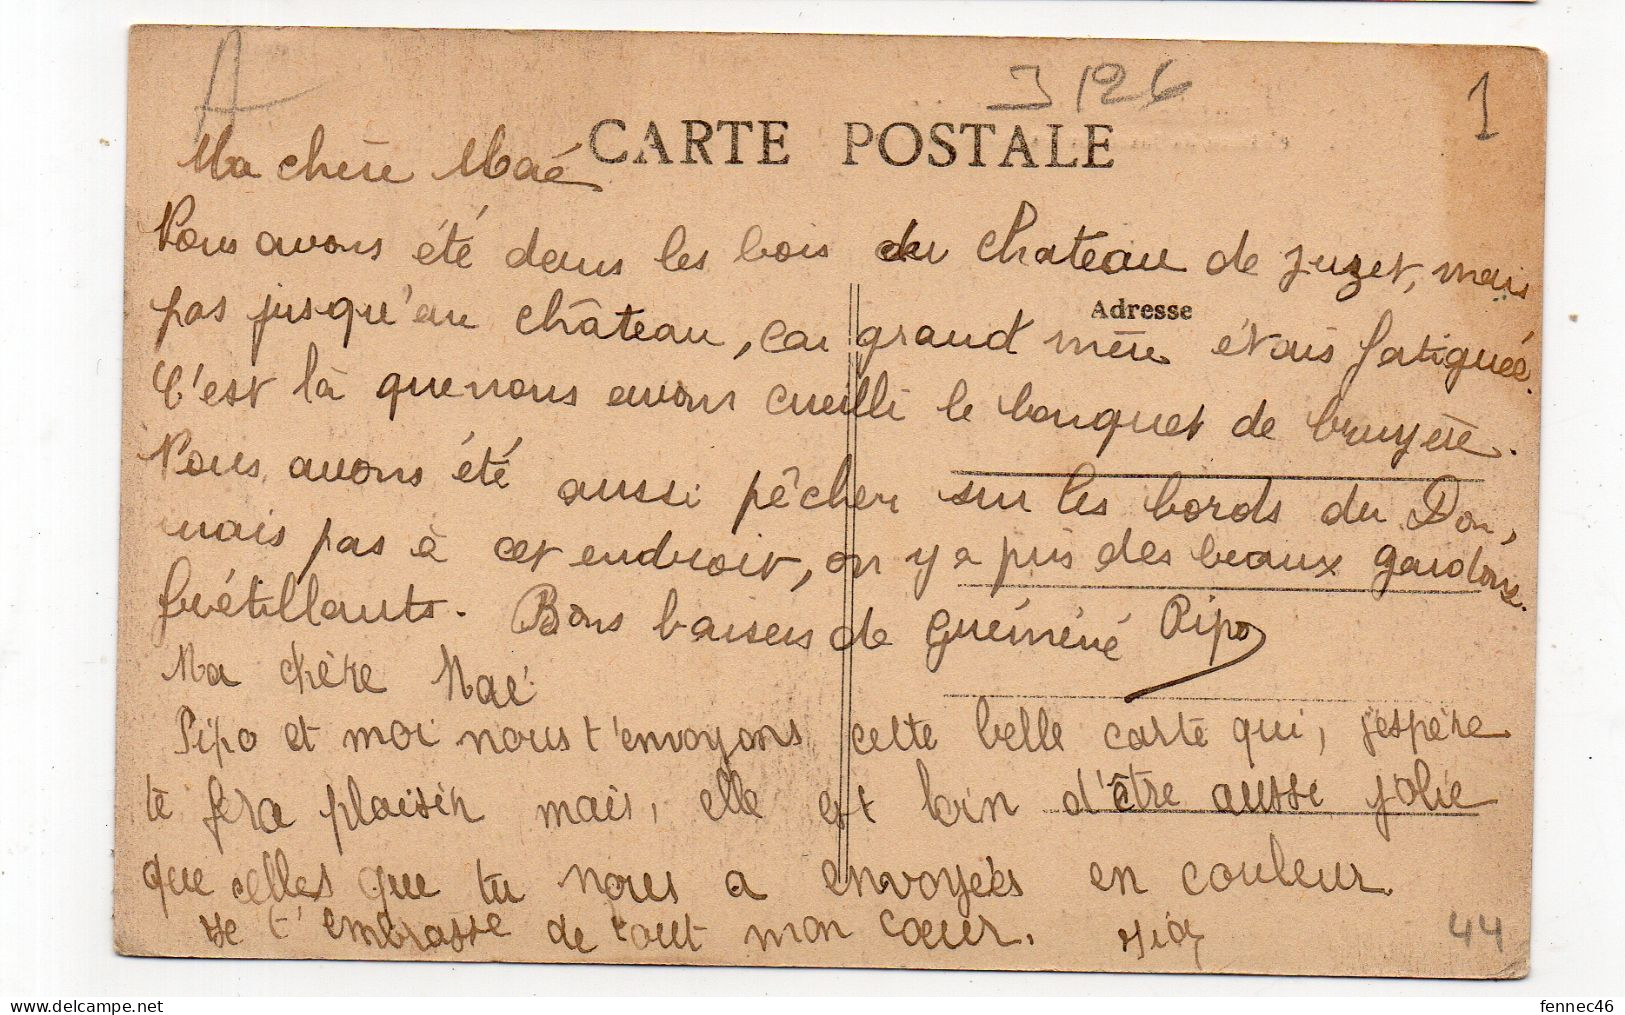 A
J 126
1
CARTE POSTALE
Ma chère Maé
Nous avons été dans les bois du château de Juzet, mais
Adresse
pas jusqu'au château, car grand mère étais fatiguée.
C'est là que nous avons cueilli le bouquet de bruyère.
Nous avons été aussi pêcher sur les bords du Don,
mais pas à cet endroit, on y a pris des beaux gardons
frétillants. Bons baisers de Guéméné Pipo
Ma chère Maé
Pipo et moi nous t'envoyons cette belle carte qui, j'espère
te fera plaisir mais, elle est loin d'être aussi jolie
que celles que tu nous a envoyées en couleur.
Je t'embrasse de tout mon cœur.
44
fennec46